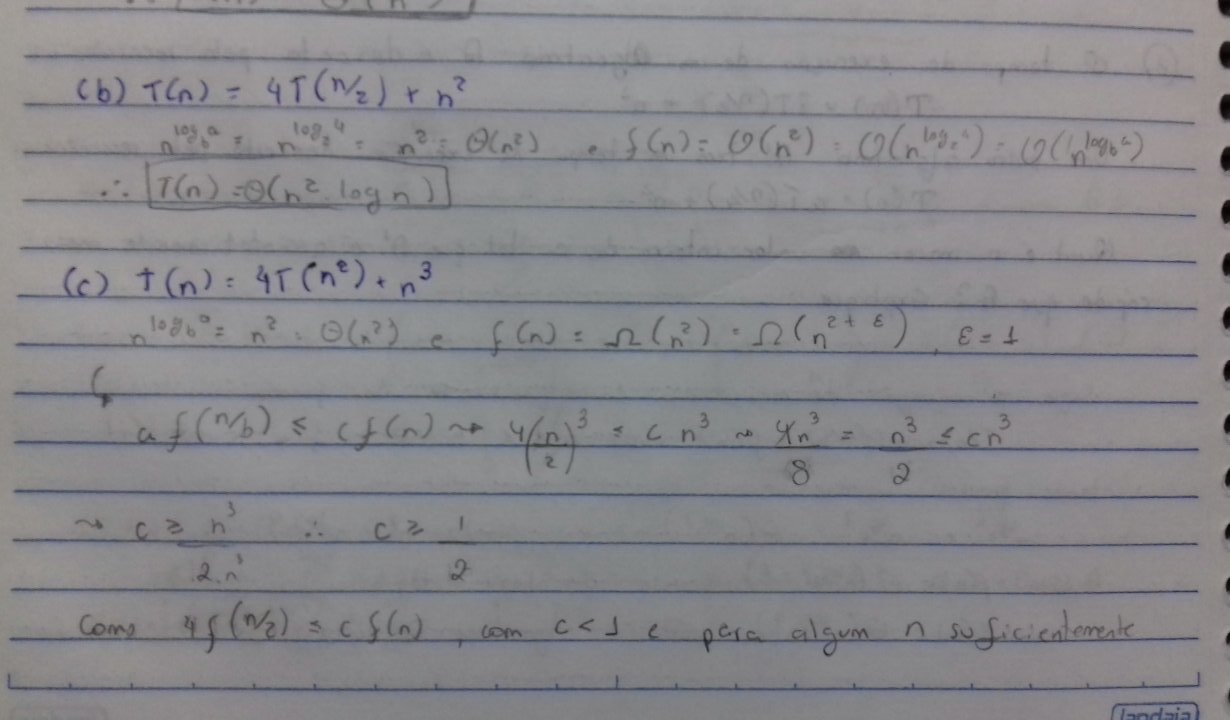 (b) T(n) = 4T(n/2) + n²
n^{log_b a} = n^{log_2 4} = n² = Θ(n²) e f(n) = O(n²) = O(n^{log_2 4}) = O(n^{log_b a})
∴ T(n) = Θ(n². log n)
(c) T(n) = 4T(n²) + n³
n^{log_b a} = n² = Θ(n²) e f(n) = Ω(n²) = Ω(n^{2+ε}), ε = 1
a f(n/b) ≤ c f(n) ⇝ 4(n/2)³ ≤ c n³ ⇝ 4n³/8 = n³/2 ≤ cn³
⇝ c ≥ n³/2.n³ ∴ c ≥ 1/2
Como 4f(n/2) ≤ c f(n), com c < 1 e para algum n suficientemente
landaia